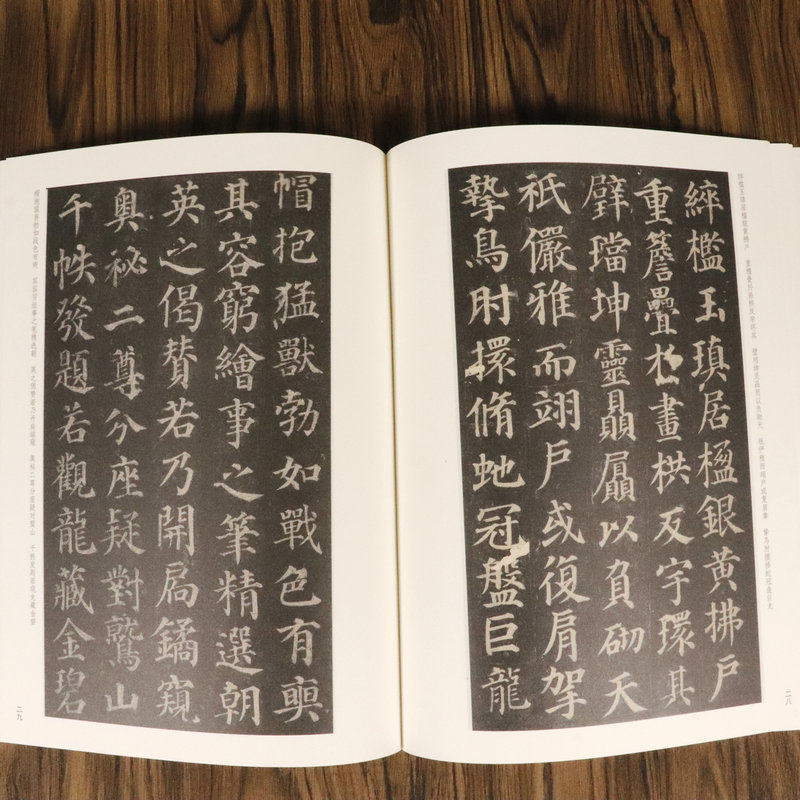 綷檻玉瑱居楹銀黃拂戶
重簷疊於畫栱反宇環其
璧璫坤靈贔屭以負砌天
祇儼雅而翊戶或復肩挐
摯鳥肘擐脩虵冠盤巨龍
二八
帽抱猛獸勃如戰色有奭
其容窮繪事之筆精選朝
英之偈贊若乃開扃鐍窺
奧祕二尊分座疑對鷲山
千帙發題若觀龍藏金碧
二九